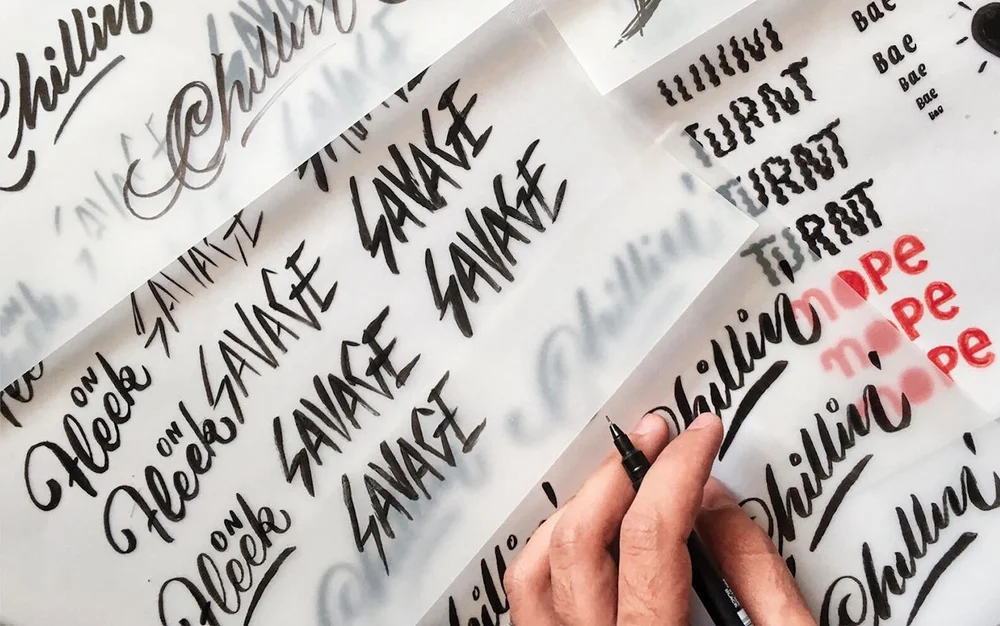 Chillin'
Chillin'
SAVAGE
SAVAGE
SAVAGE
SAVAGE
SAVAGE
SAVAGE
ON
fleek
ON
fleek
ON
fleek
TURNT
TURNT
TURNT
Bae
Bae
Bae
Bae
Bae
nOPe
nOPe
nOPe
Chillin'
Chillin'
Chillin'
Chillin'